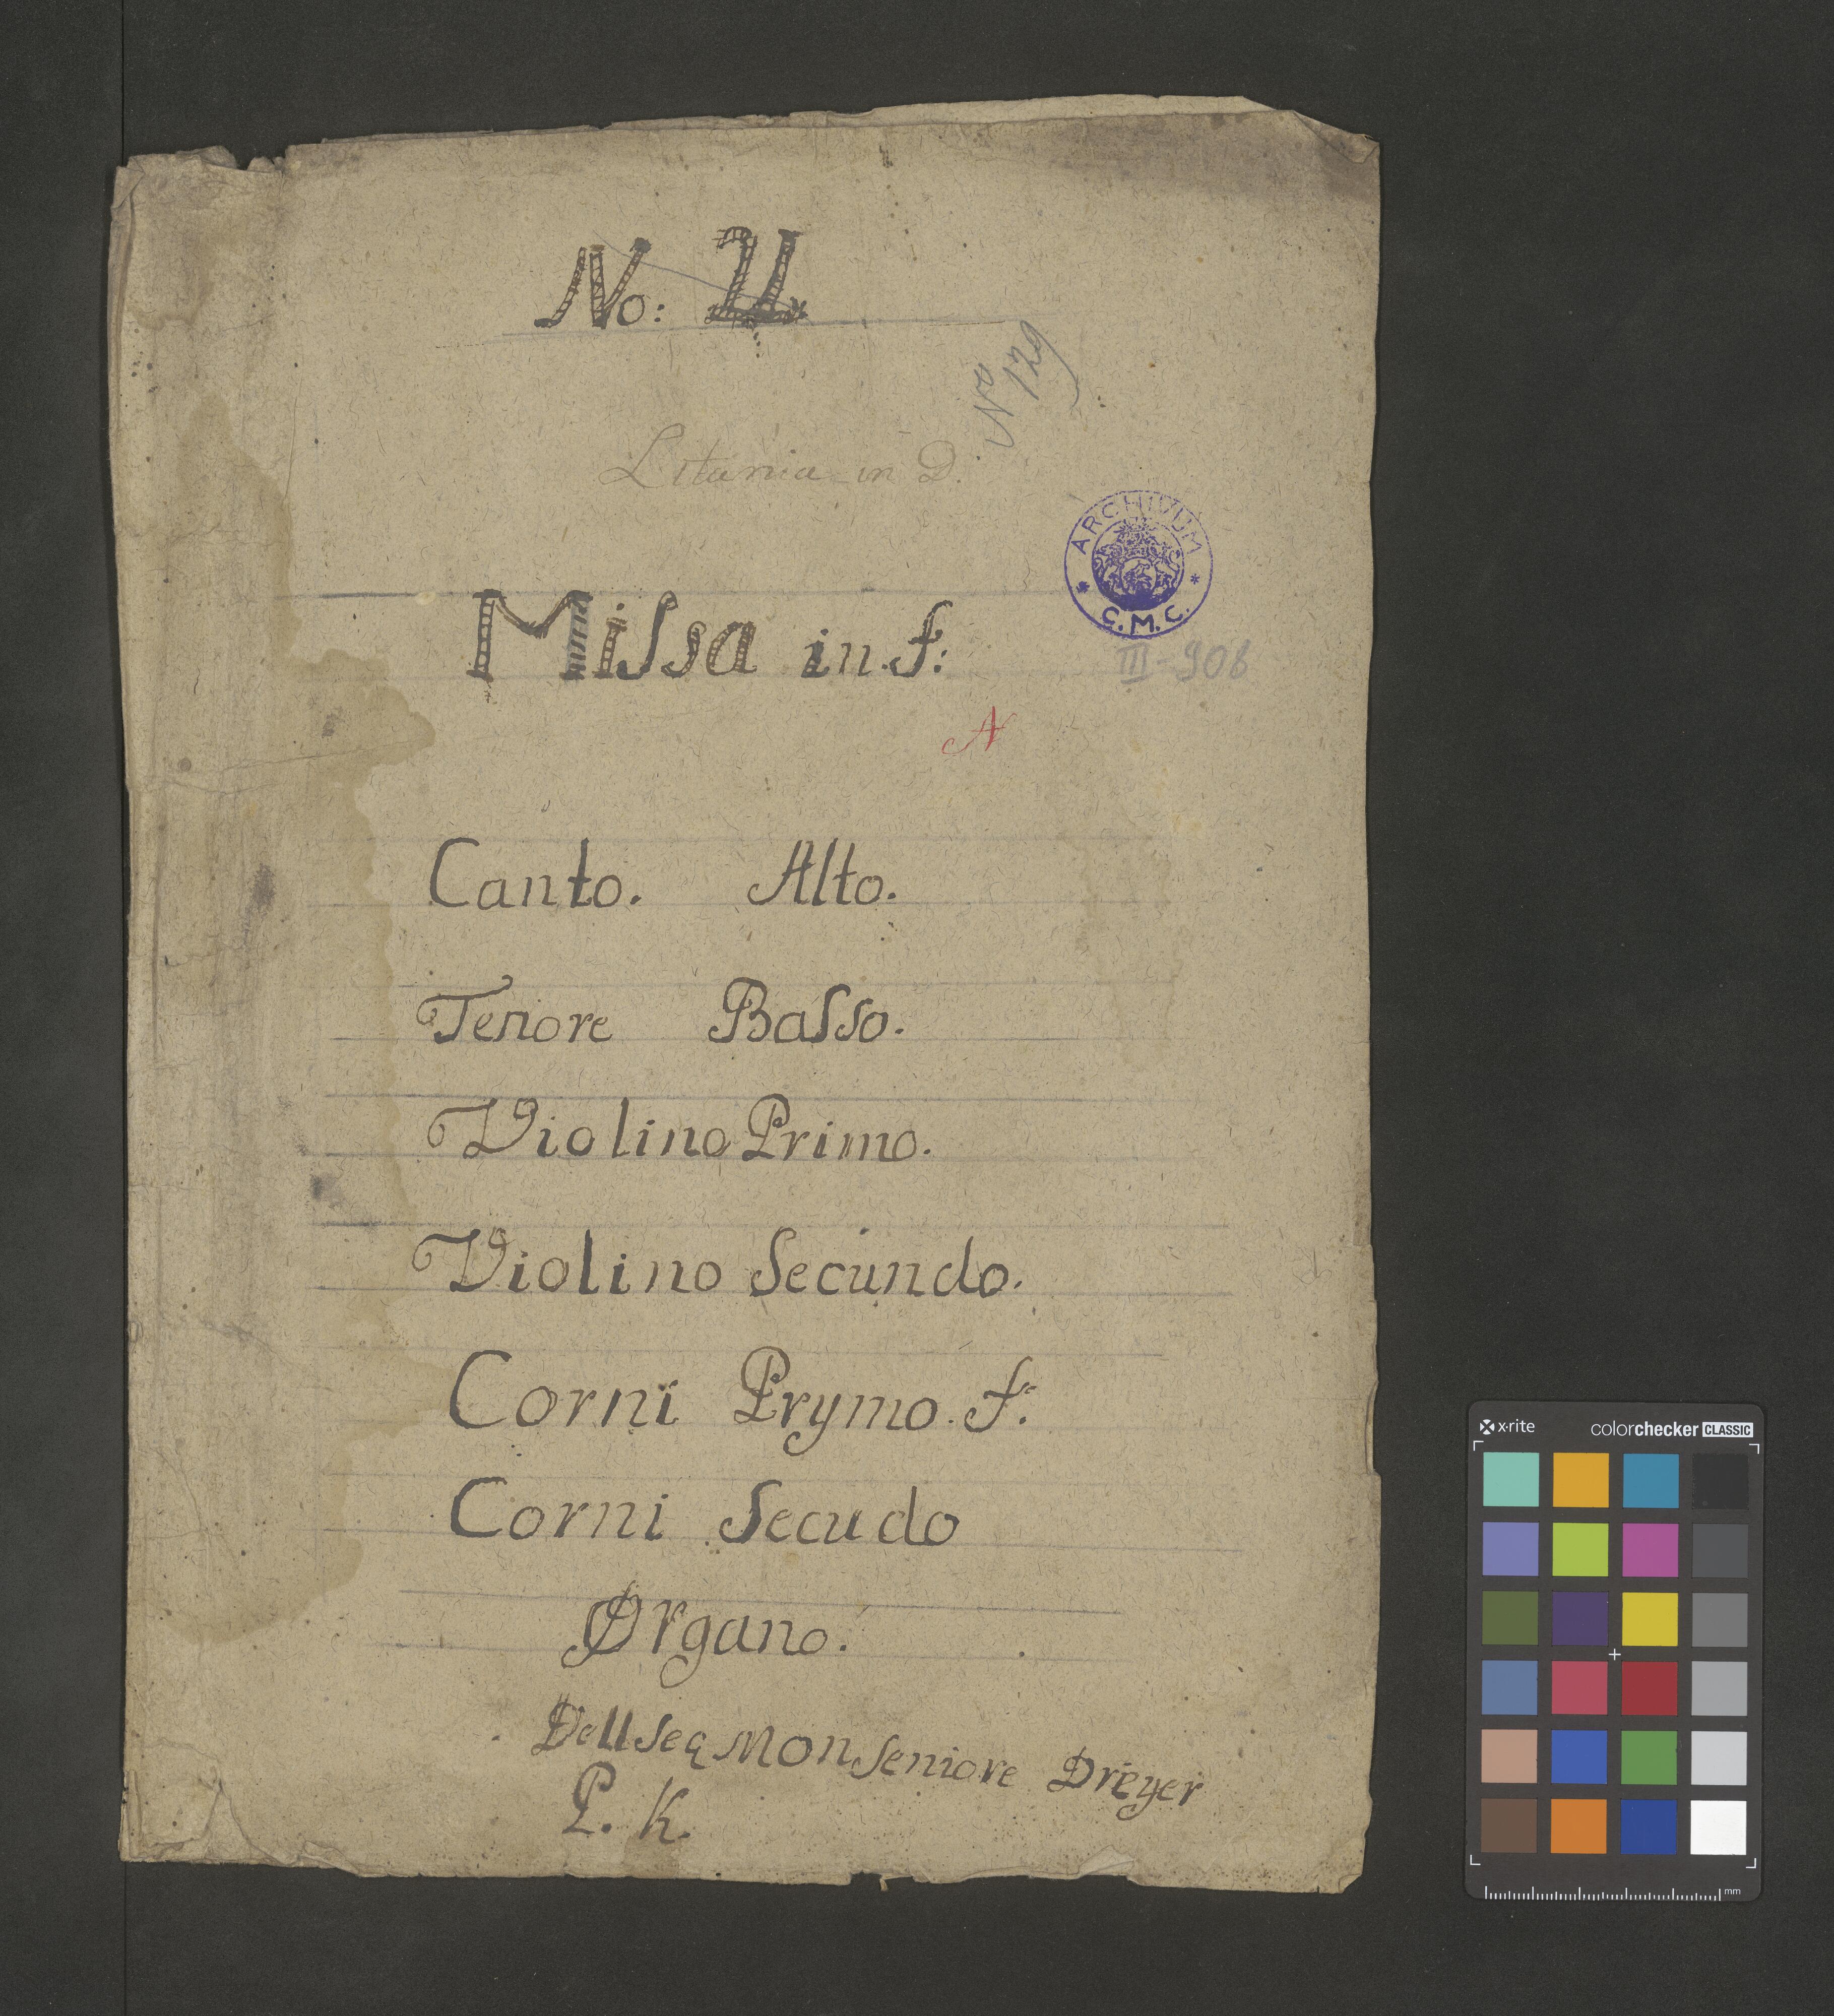 No: 21
No 129
Litania in D.
ARCHIVUM
C.M.C.
Missa in. f:
III-908
A
Canto. Alto.
Tenore Basso.
Violino Primo.
Violino Secundo.
Corni Prymo. f.
Corni Secudo
Organo.
Dell Seq Monseniore Dreyer
P. K.
x-rite colorchecker CLASSIC
mm